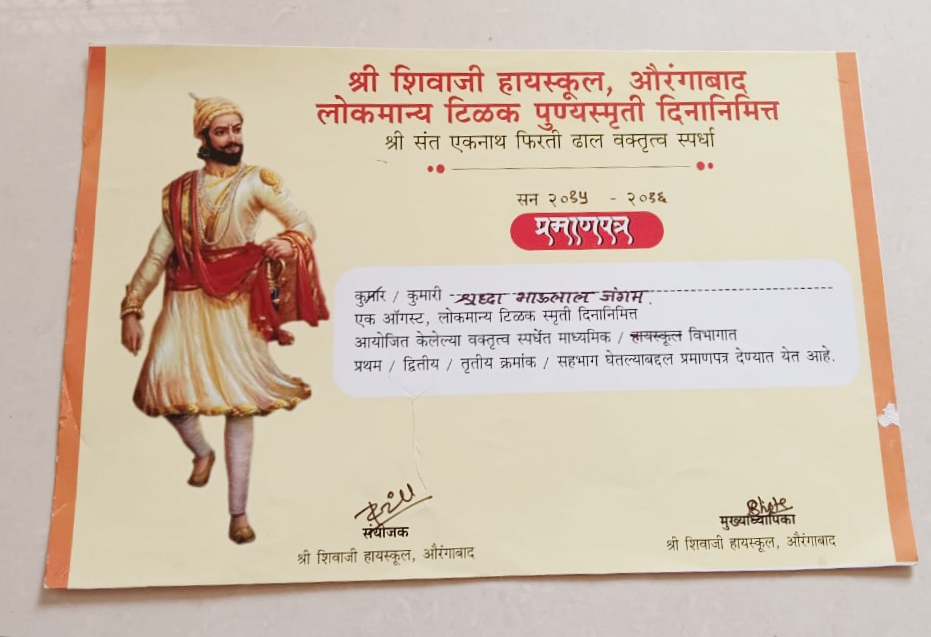 श्री शिवाजी हायस्कूल, औरंगाबाद
लोकमान्य टिळक पुण्यस्मृती दिनानिमित्त
श्री संत एकनाथ फिरती ढाल वक्तृत्व स्पर्धा
सन २०१५ - २०१६
प्रमाणपत्र
कुमार / कुमारी श्रध्दा भाऊलाल जंगम.
एक ऑगस्ट, लोकमान्य टिळक स्मृती दिनानिमित्त
आयोजित केलेल्या वक्तृत्व स्पर्धेत माध्यमिक / हायस्कूल विभागात
प्रथम / द्वितीय / तृतीय क्रमांक / सहभाग घेतल्याबद्दल प्रमाणपत्र देण्यात येत आहे.
संयोजक
श्री शिवाजी हायस्कूल, औरंगाबाद
मुख्याध्यापिका
श्री शिवाजी हायस्कूल, औरंगाबाद